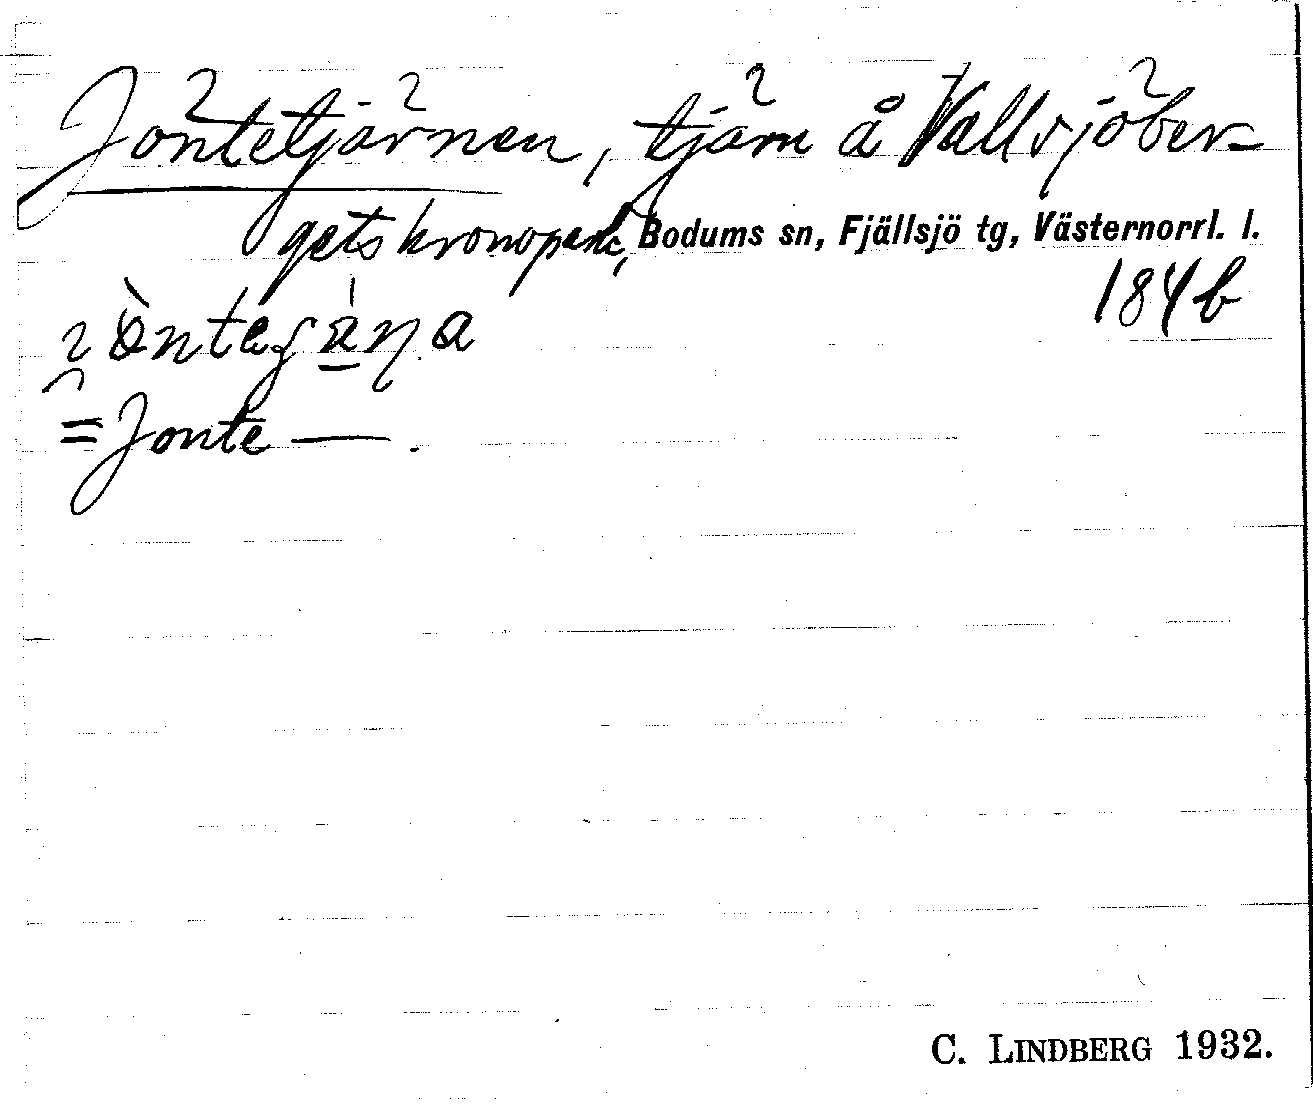 Jöntetjärnen, tjärn å Vallsjöber-
gets kronopark, Bodums sn, Fjällsjö tg, Västernorrl. l.
184 b
= Jonte —.
C. LINDBERG 1932.